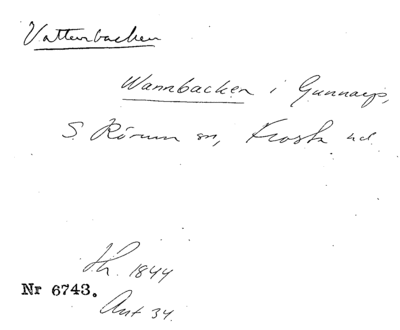 Vattenbacken
Wannbacken i Gunnarp,
S. Rörum sn, Frosta hd
Lh. 1844
Nr 6743.
Ant 34.